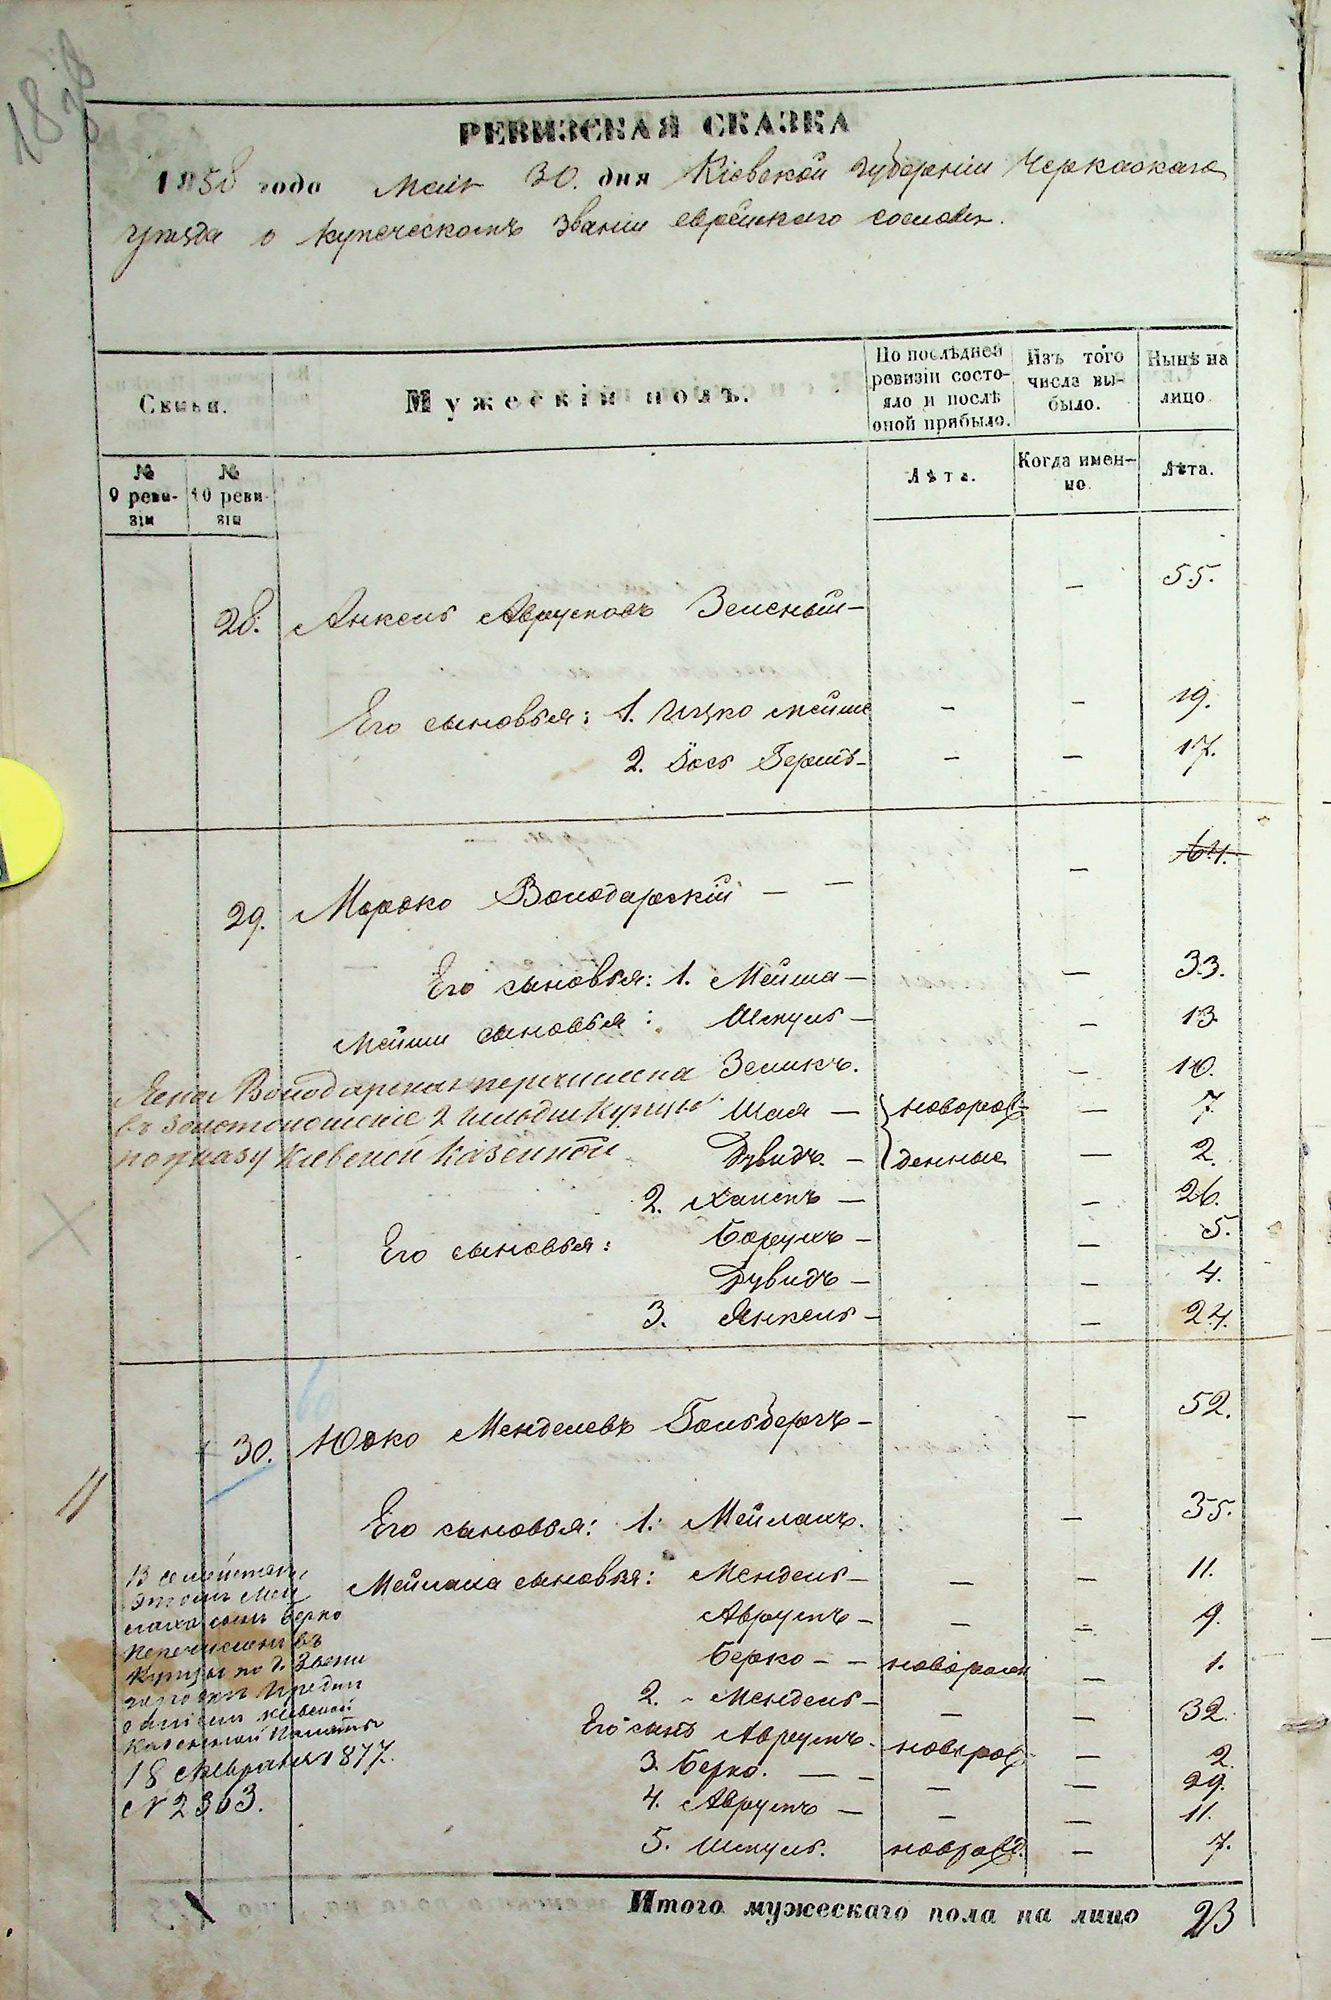 РЕВИЗСКАЯ СКАЗКА
1858 года Маія 30. дня Кіевской губерніи Черкаскаго
уѣзда о купеческомъ званіи еврейскаго сословія.
Семьи.
Мужескій полъ.
По послѣдней ревизіи состояло и послѣ оной прибыло.
Изъ того числа выбыло.
Нынѣ на лицо
№ 9 ревизіи
№ 10 ревизіи
Лѣта.
Когда именно
Лѣта.
28. Анкель Аврумовъ Зеленый — — 55.
Его сыновья: 1. Ицко Мейше — — 19.
2. Іось Гершъ — — — 17.
29. Мошко Володарскій — — — 64.
Его сыновья: 1. Мейша — — 33.
Мейши сыновья: Шмуль — — 13
Зеликъ. — 10.
Шая — новорож- — 7
Дувидъ. — денные — 2.
Володарская перечислена
въ Золотоношскіе 2 гильдіи Купцы
по указу Кіевской Казенной
2. Хаимъ — — 26.
Его сыновья: Борухъ — — 5.
Дувидъ — — 4.
3. Янкель — — 24.
30. Юдко Менделевъ Гольдбергъ — — 52.
Его сыновья: 1. Мейлахъ. — 35.
Мейлаха сыновья: Мендель — — — 11.
Аврумъ — — — 9.
Берко — — новорожд — 1.
2. Мендель — — — 32.
Его сынъ Аврумъ. новорож — 2.
3. Берко. — — — — 29.
4. Аврумъ — — — 11.
5. Шмуль. новорожд. — 7.
В семействѣ
этомъ Мей
лаха сынъ Берко
перечисленъ въ
Купцы по г. Звени
городкѣ
Кіевской
Казенной Палаты
18 Февраля 1877.
№ 2303.
Итого мужескаго пола на лицо 23